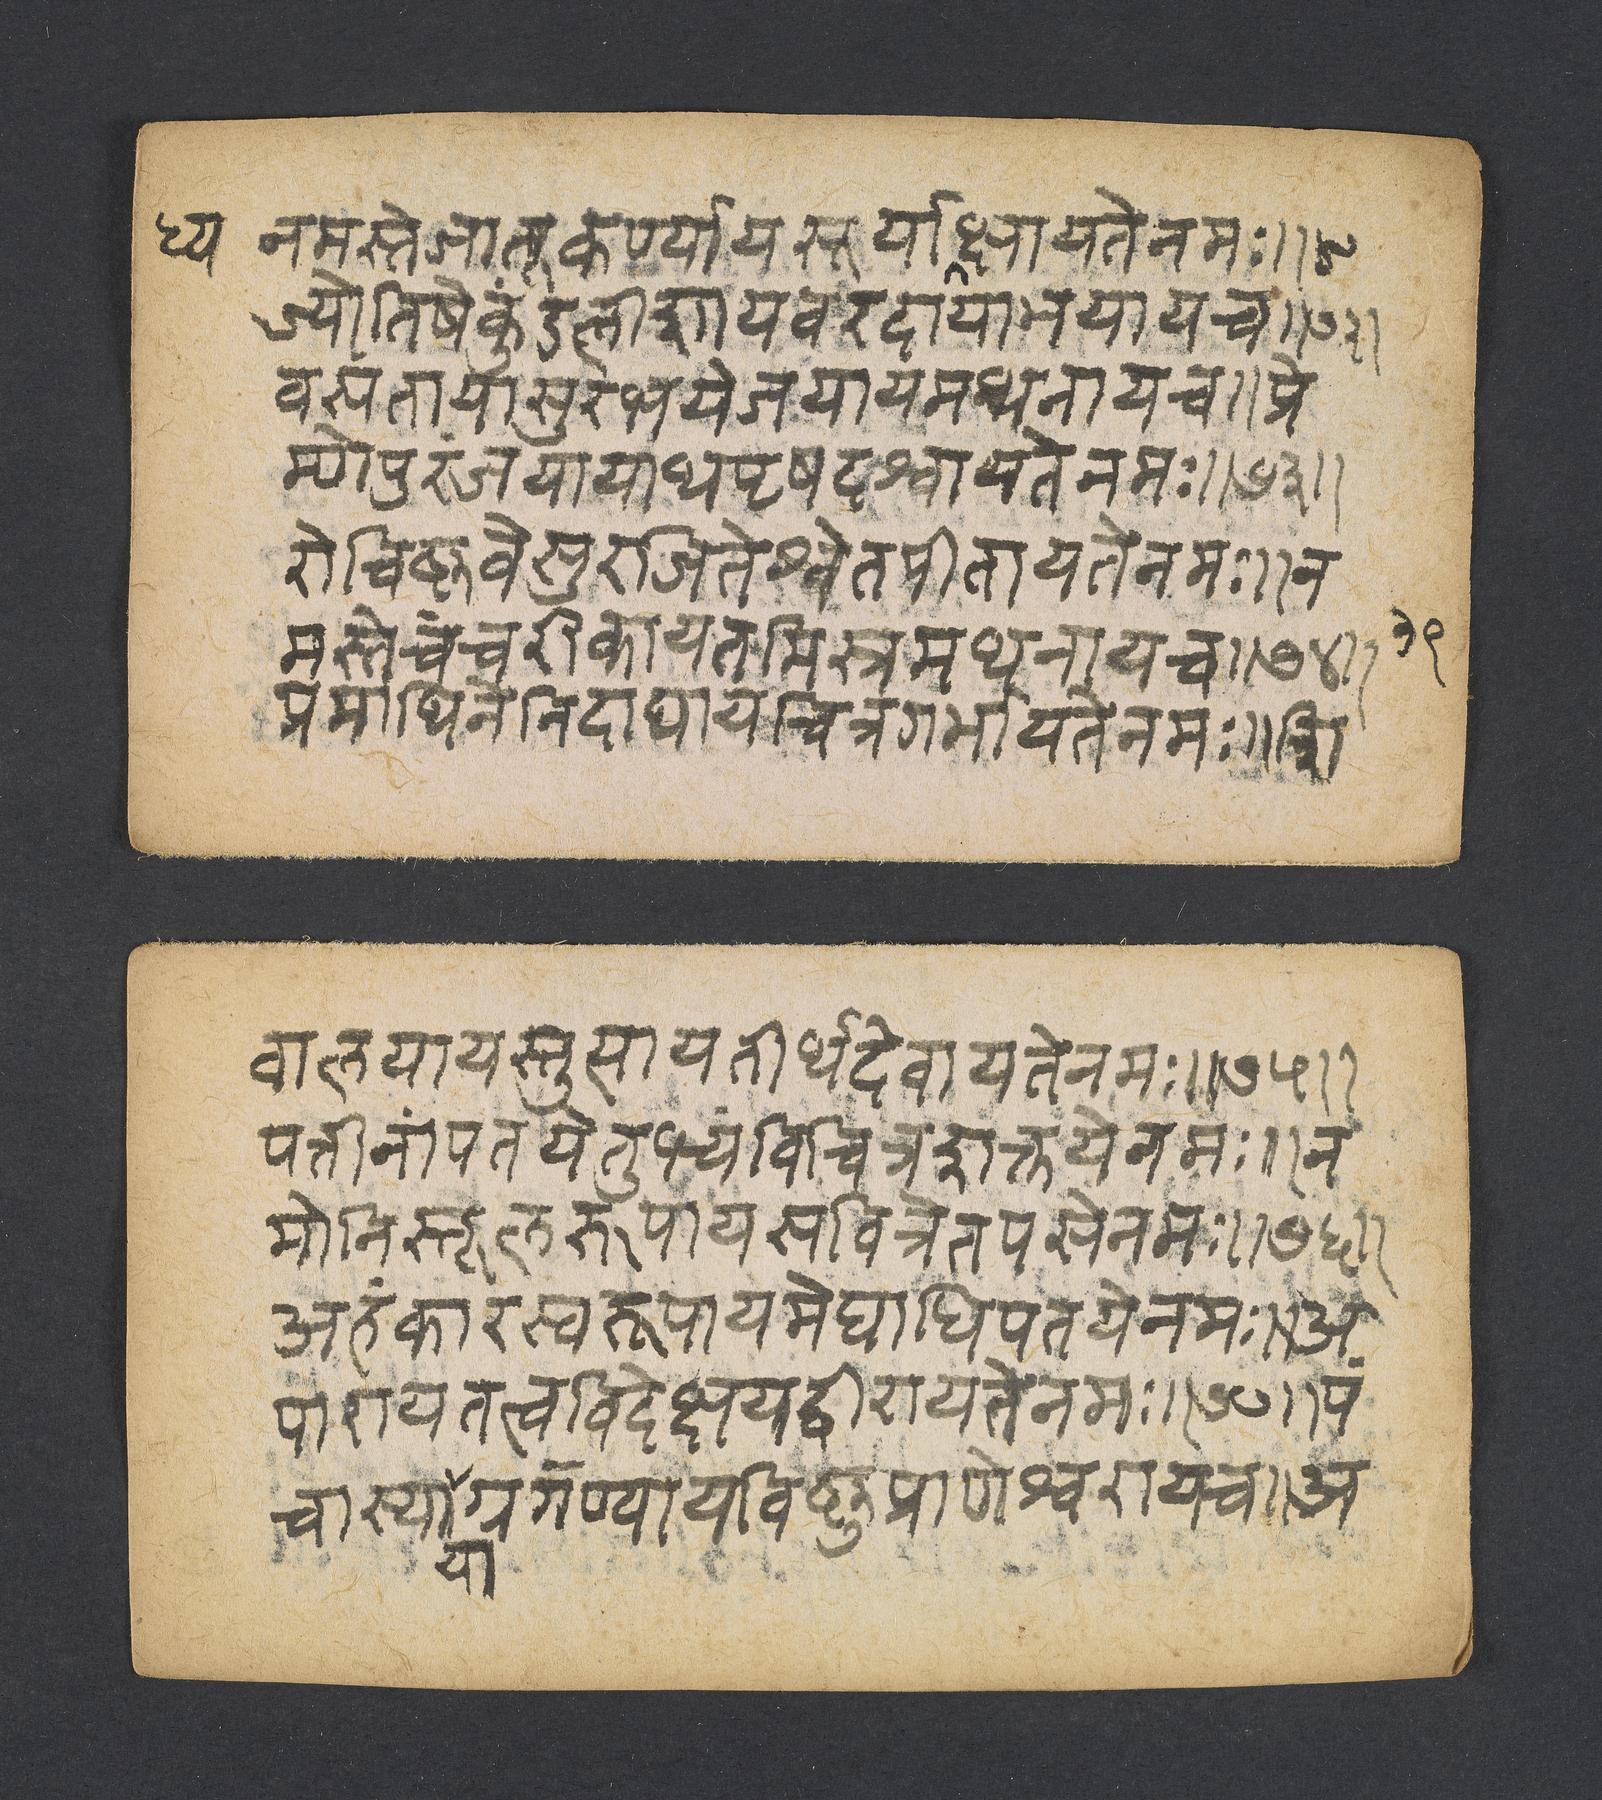 ध्य
नमस्तेजातूकर्ण्यायसूर्याक्षायतेनमः॥
ज्योतिषेकुंडलीशायवरदायाभयायच॥७२॥
वसंतायासुरक्षयेजयायमथनायच॥प्रे
म्णेपुरंजयायाथपृषदश्वायतेनमः॥७३॥
रोचिष्णवेसुरजितेश्वेतपीतायतेनमः॥न
मस्तेचंचरीकायतमिस्त्रमथनायच॥७४॥
३९
प्रमाथिनेनिदाघायचित्रगर्भायतेनमः॥शि
वालयायस्तुत्यायतीर्थदेवायतेनमः॥७५॥
पत्तीनांपतयेतुभ्यंविचित्रशक्तयेनमः॥न
मोनिस्तूलरूपायसवित्रेतपसेनमः॥७६॥
अहंकारस्वरूपायमेघाधिपतयेनमः॥अ
पारायतत्वविदेक्षयद्वीरायतेनमः॥७७॥पं
चास्याग्रगण्यायविष्णुप्राणेश्वरायच॥अ
या